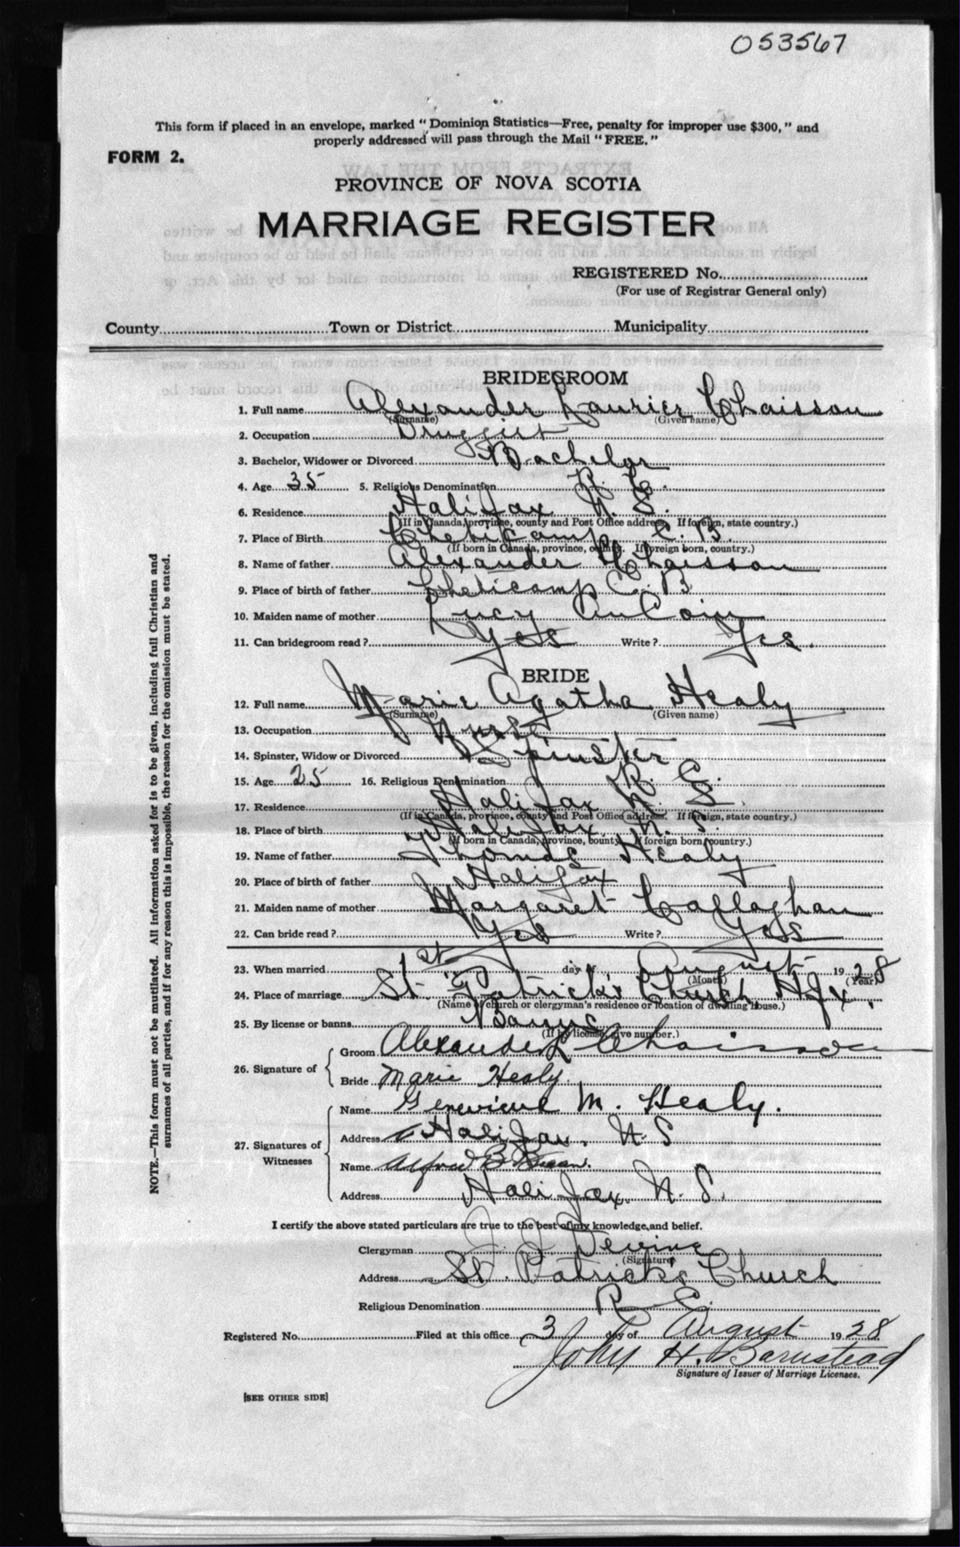 053567
This form if placed in an envelope, marked "Dominion Statistics—Free, penalty for improper use $300," and
properly addressed will pass through the Mail "FREE."
FORM 2.
PROVINCE OF NOVA SCOTIA
MARRIAGE REGISTER
REGISTERED No.
(For use of Registrar General only)
County Town or District Municipality
BRIDEGROOM
1. Full name Alexander Laurier Chaisson
(Surname) (Given name)
2. Occupation Druggist
3. Bachelor, Widower or Divorced Bachelor
4. Age 35 5. Religious Denomination R. C.
6. Residence Halifax N. S.
(If in Canada, province, county and Post Office address. If foreign, state country.)
7. Place of Birth Cheticamp C. B.
(If born in Canada, province, county. If foreign born, country.)
8. Name of father Alexander Chaisson
9. Place of birth of father Cheticamp C. B
10. Maiden name of mother Lucy AuCoin
11. Can bridegroom read? Yes Write? Yes.
BRIDE
12. Full name Marie Agatha Healy
(Surname) (Given name)
13. Occupation Nurse
14. Spinster, Widow or Divorced Spinster
15. Age 25 16. Religious Denomination R. C.
17. Residence Halifax N. S.
(If in Canada, province, county and Post Office address. If foreign, state country.)
18. Place of birth Halifax N. S.
(If born in Canada, province, county. If foreign born, country.)
19. Name of father Thomas Healy
20. Place of birth of father Halifax
21. Maiden name of mother Margaret Callaghan
22. Can bride read? Yes Write? Yes
23. When married 1st day of August 1928
(Month) (Year)
24. Place of marriage St. Patrick's Church Hfx.
(Name of church or clergyman's residence or location of dwelling house.)
25. By license or banns Banns
(If by license, give number.)
26. Signature of
Groom Alexander L Chaisson
Bride Marie Healy.
27. Signatures of Witnesses
Name Genevieve M. Healy.
Address Halifax, N. S
Name Alfred B.
Address Halifax, N. S.
I certify the above stated particulars are true to the best of my knowledge, and belief.
Clergyman Devine
(Signature)
Address St. Patrick's Church
Religious Denomination R. C.
Registered No. Filed at this office 3 day of August 1928
John H. Barnstead
Signature of Issuer of Marriage Licenses.
[SEE OTHER SIDE]
NOTE.—This form must not be mutilated. All information asked for is to be given, including full Christian and
surnames of all parties, and if for any reason this is impossible, the reason for the omission must be stated.